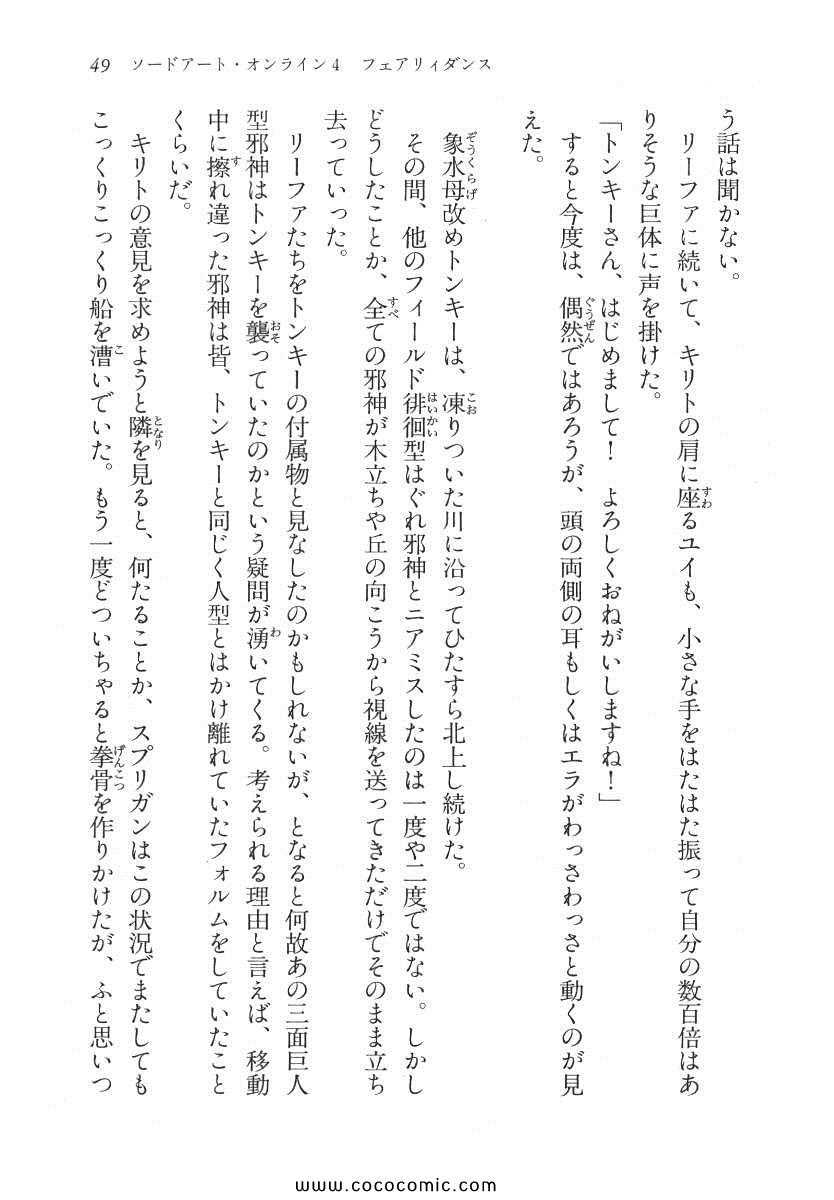 49 ソードアート・オンライン4 フェアリィダンス
う話は聞かない。
リーファに続いて、キリトの肩に座るユイも、小さな手をはたはた振って自分の数百倍はあ
りそうな巨体に声を掛けた。
「トンキーさん、はじめまして！ よろしくおねがいしますね！」
すると今度は、偶然ではあろうが、頭の両側の耳もしくはエラがわっさわっさと動くのが見
えた。
象水母改めトンキーは、凍りついた川に沿ってひたすら北上し続けた。
その間、他のフィールド徘徊型はぐれ邪神とニアミスしたのは一度や二度ではない。しかし
どうしたことか、全ての邪神が木立ちや丘の向こうから視線を送ってきただけでそのまま立ち
去っていった。
リーファたちをトンキーの付属物と見なしたのかもしれないが、となると何故あの三面巨人
型邪神はトンキーを襲っていたのかという疑問が湧いてくる。考えられる理由と言えば、移動
中に擦れ違った邪神は皆、トンキーと同じく人型とはかけ離れていたフォルムをしていたこと
くらいだ。
キリトの意見を求めようと隣を見ると、何たることか、スプリガンはこの状況でまたしても
こっくりこっくり船を漕いでいた。もう一度どついちゃると拳骨を作りかけたが、ふと思いつ
www.cococomic.com